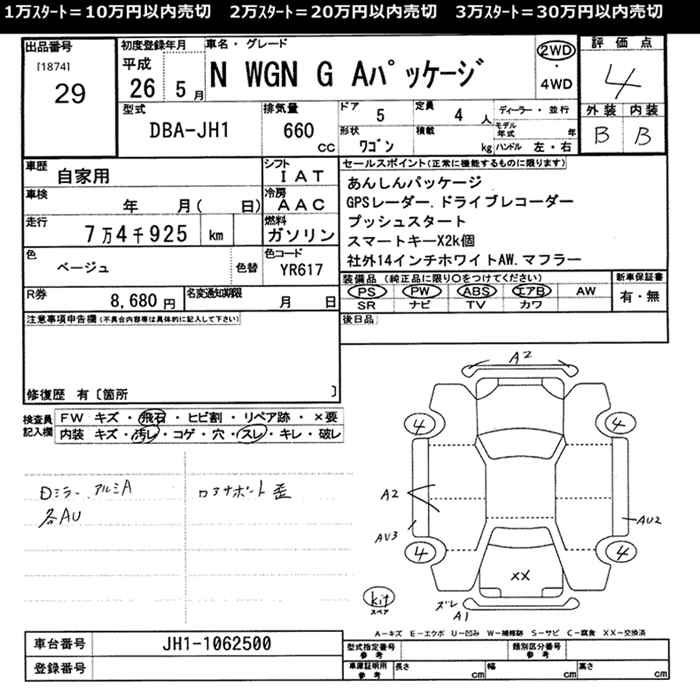 1万ｽﾀｰﾄ＝10万円以内売切　2万ｽﾀｰﾄ＝20万円以内売切　3万ｽﾀｰﾄ＝30万円以内売切
出品番号
[1874]
29
初度登録年月
平成
26 5 月
車名・グレード
N WGN G Aパッケージ
2WD
・
4WD
評価点
4
外装 内装
B B
型式
DBA-JH1
排気量
660
CC
ドア
5
定員
4 人
ディーラー・並行
モデル年式 年
形状
ワゴン
積載
kg
ハンドル 左・右
車歴
自家用
シフト
IAT
車検
年 月( 日)
冷房
AAC
走行
7万4千925 km
燃料
ガソリン
色
ベージュ
色替
色コード
YR617
R券
8,680 円
名変通知期限
月 日
セールスポイント(正常に機能するものに限ります)
あんしんパッケージ
GPSレーダー.ドライブレコーダー
プッシュスタート
スマートキーX2k個
社外14インチホワイトAW.マフラー
装備品 (純正品に限り○をつけてください)
PS PW ABS エアB AW
SR ナビ TV カワ
新車保証書
有・無
後日品
注意事項申告欄(不具合内容等は具体的に記入して下さい)
修復歴 有〔箇所 〕
検査員記入欄
FW キズ・飛石・ヒビ割・リペア跡・×要
内装 キズ・汚レ・コゲ・穴・スレ・キレ・破レ
Dミラー、アルミA
各AU
ロアサポート歪
A2
4
4
A2
AU3
AU2
4
4
XX
kit
スペア
ズレ
A1
A－キズ E－エクボ U－凹み W－補修跡 S－サビ C－腐食 XX－交換済
車台番号
JH1-1062500
登録番号
型式指定番号
参考
類別区分番号
参考
車庫証明用
参考
長さ cm
幅 cm
高さ cm